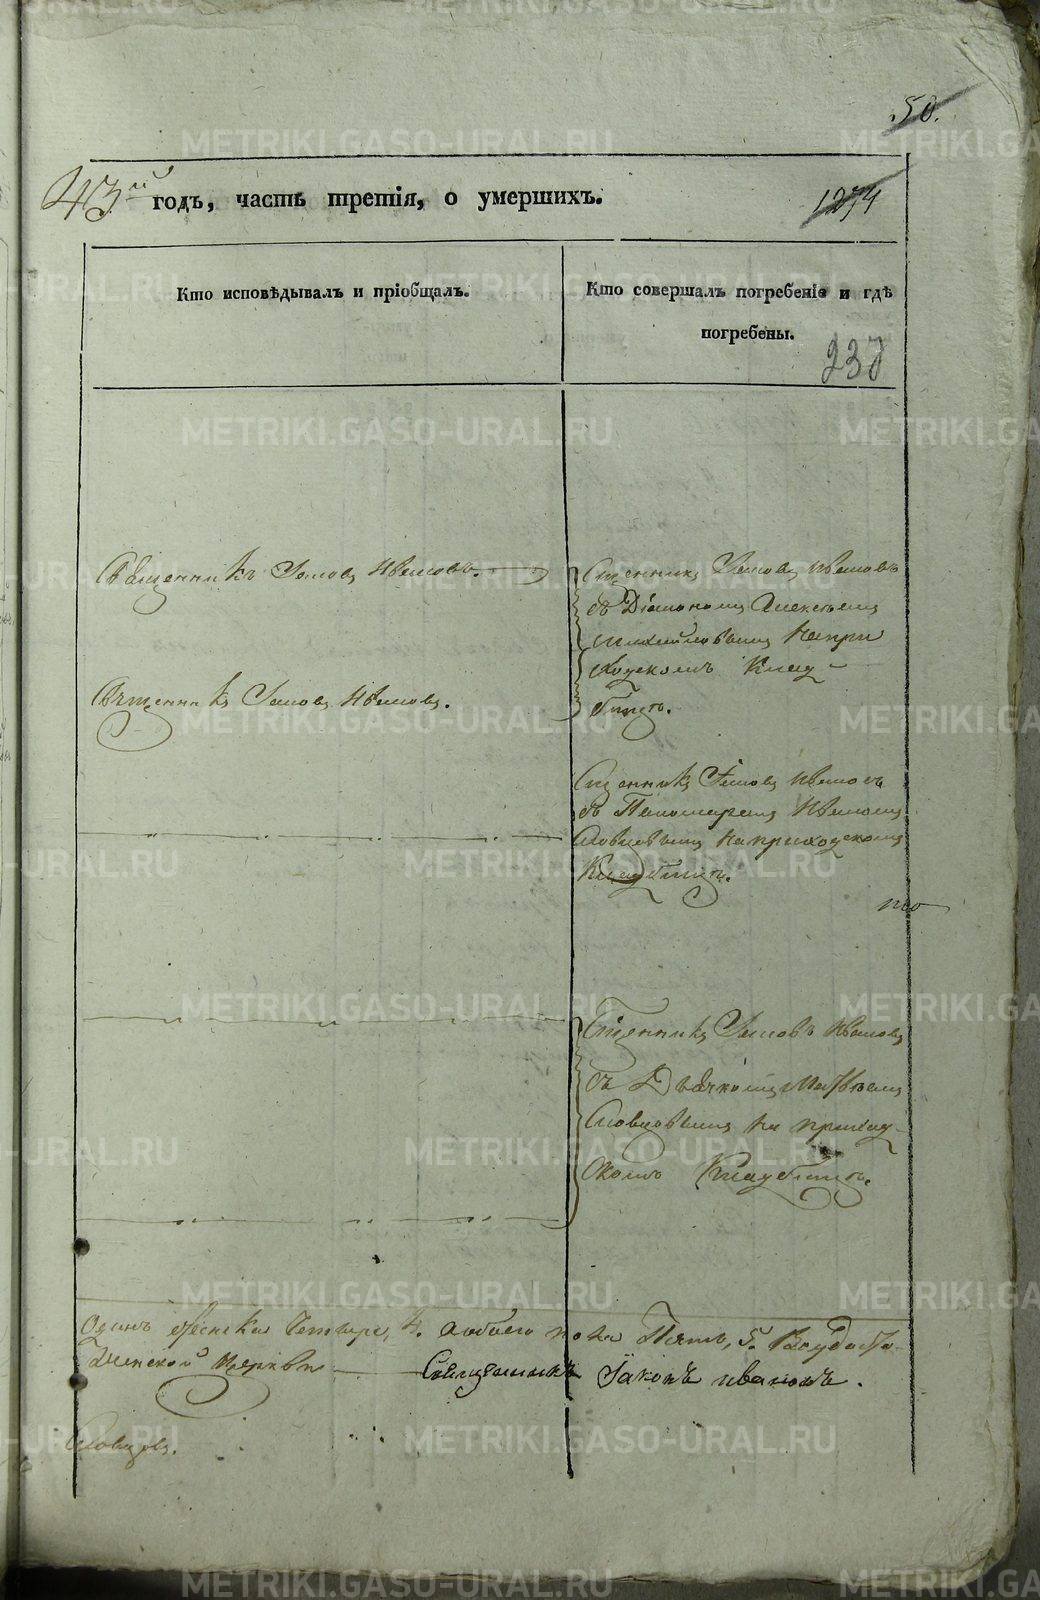 50.
43й годъ, часть третія, о умершихъ.
1274
Кто исповѣдывалъ и пріобщалъ.
Кто совершалъ погребеніе и гдѣ
погребены.
237
Священникъ Іаковъ Ивановъ.
Сщенникъ Іаковъ Ивановъ
съ Діакономъ Алексѣемъ
на при
ходскомъ Клад-
бищѣ.
Священникъ Іаковъ Ивановъ.
Сщенникъ Іаковъ Ивановъ
съ Пономаремъ Иваномъ
Словцовымъ на приходскомъ
Кладбищѣ.
Сщенникъ Іаковъ Ивановъ
съ Дьячкомъ Матѳѣемъ
Словцовымъ на приход-
скомъ Кладбищѣ.
Одинъ женска Четыре, 4. обоего пола Пять, 5.
церкви Священникъ Іаковъ Ивановъ.
Словцовъ.
METRIKI.GASO-URAL.RU